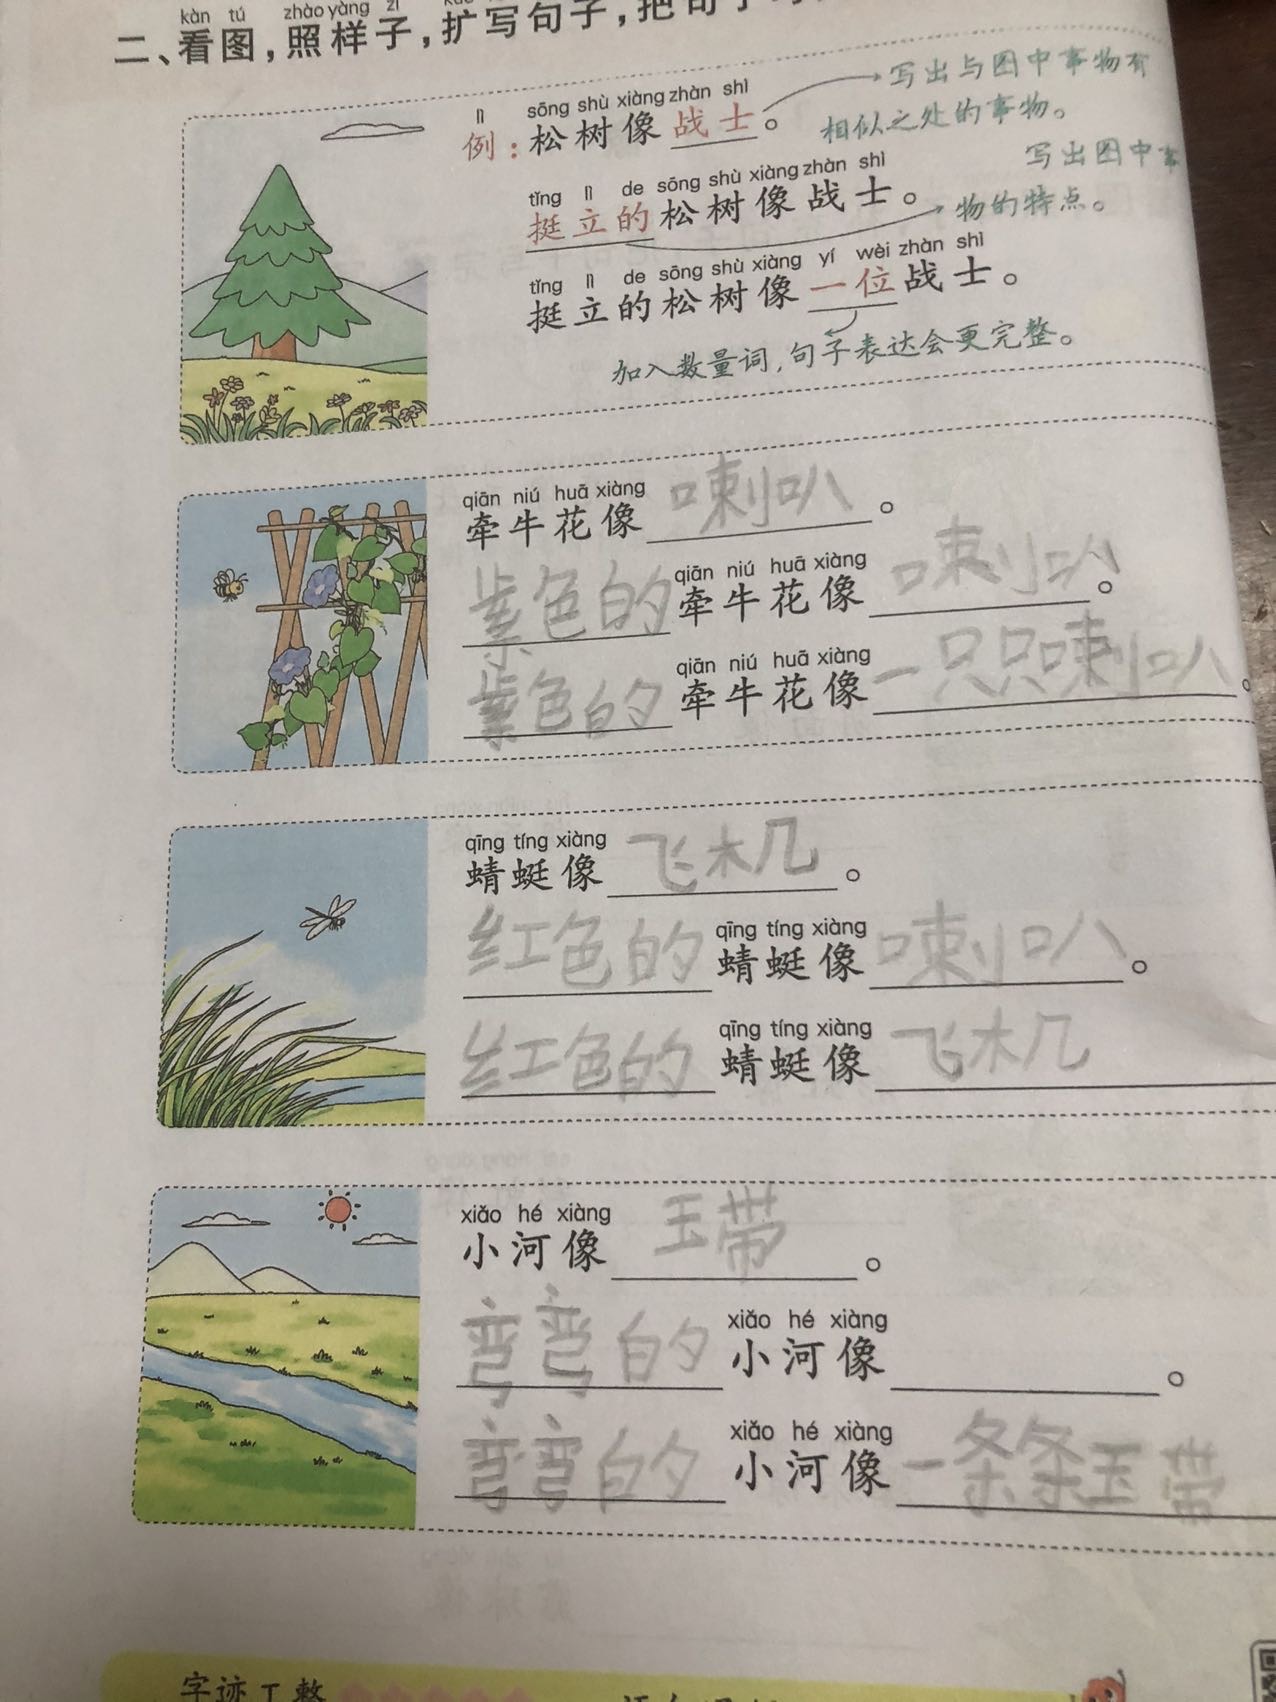 kàn tú zhào yàng zi
二、看图，照样子，扩写句子，把句子
lì sōng shù xiàng zhàn shì
例：松树像战士。
写出与图中事物有
相似之处的事物。
tǐng lì de sōng shù xiàng zhàn shì
挺立的松树像战士。
写出图中事
物的特点。
tǐng lì de sōng shù xiàng yí wèi zhàn shì
挺立的松树像一位战士。
加入数量词，句子表达会更完整。
qiān niú huā xiàng
牵牛花像喇叭。
qiān niú huā xiàng
紫色的牵牛花像喇叭。
qiān niú huā xiàng
紫色的牵牛花像一只只喇叭。
qīng tíng xiàng
蜻蜓像飞机。
qīng tíng xiàng
红色的蜻蜓像喇叭。
qīng tíng xiàng
红色的蜻蜓像飞机
xiǎo hé xiàng
小河像玉带。
xiǎo hé xiàng
弯弯的小河像。
xiǎo hé xiàng
弯弯的小河像一条条玉带
字迹工整